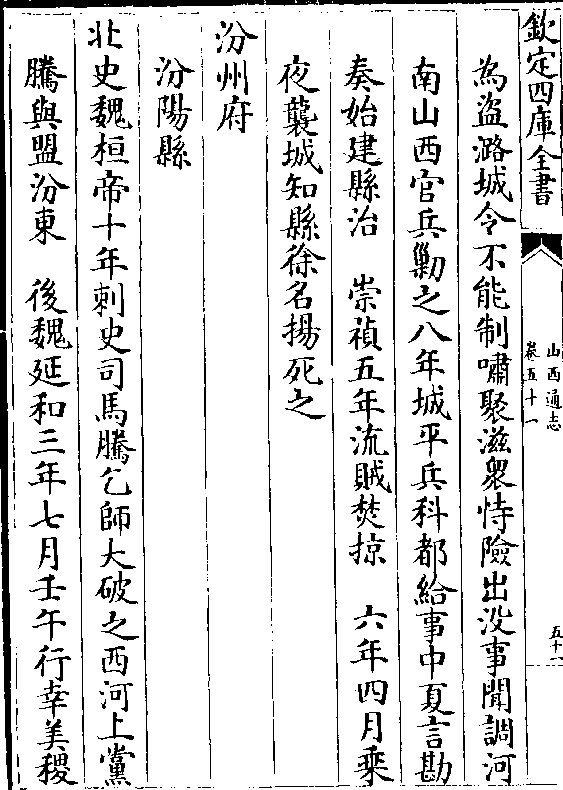 欽定四庫全書
山西通志
卷五十一
五十一
為盗潞城令不能制嘯聚滋衆恃險出没事聞調河
南山西官兵勦之八年城平兵科都給事中夏言勘
奏始建縣治　崇禎五年流賊焚掠　六年四月乗
夜襲城知縣徐名揚死之
汾州府
汾陽縣
北史魏桓帝十年刺史司馬騰乞師大破之西河上黨
騰與盟汾東　後魏延和三年七月壬午行幸美稷